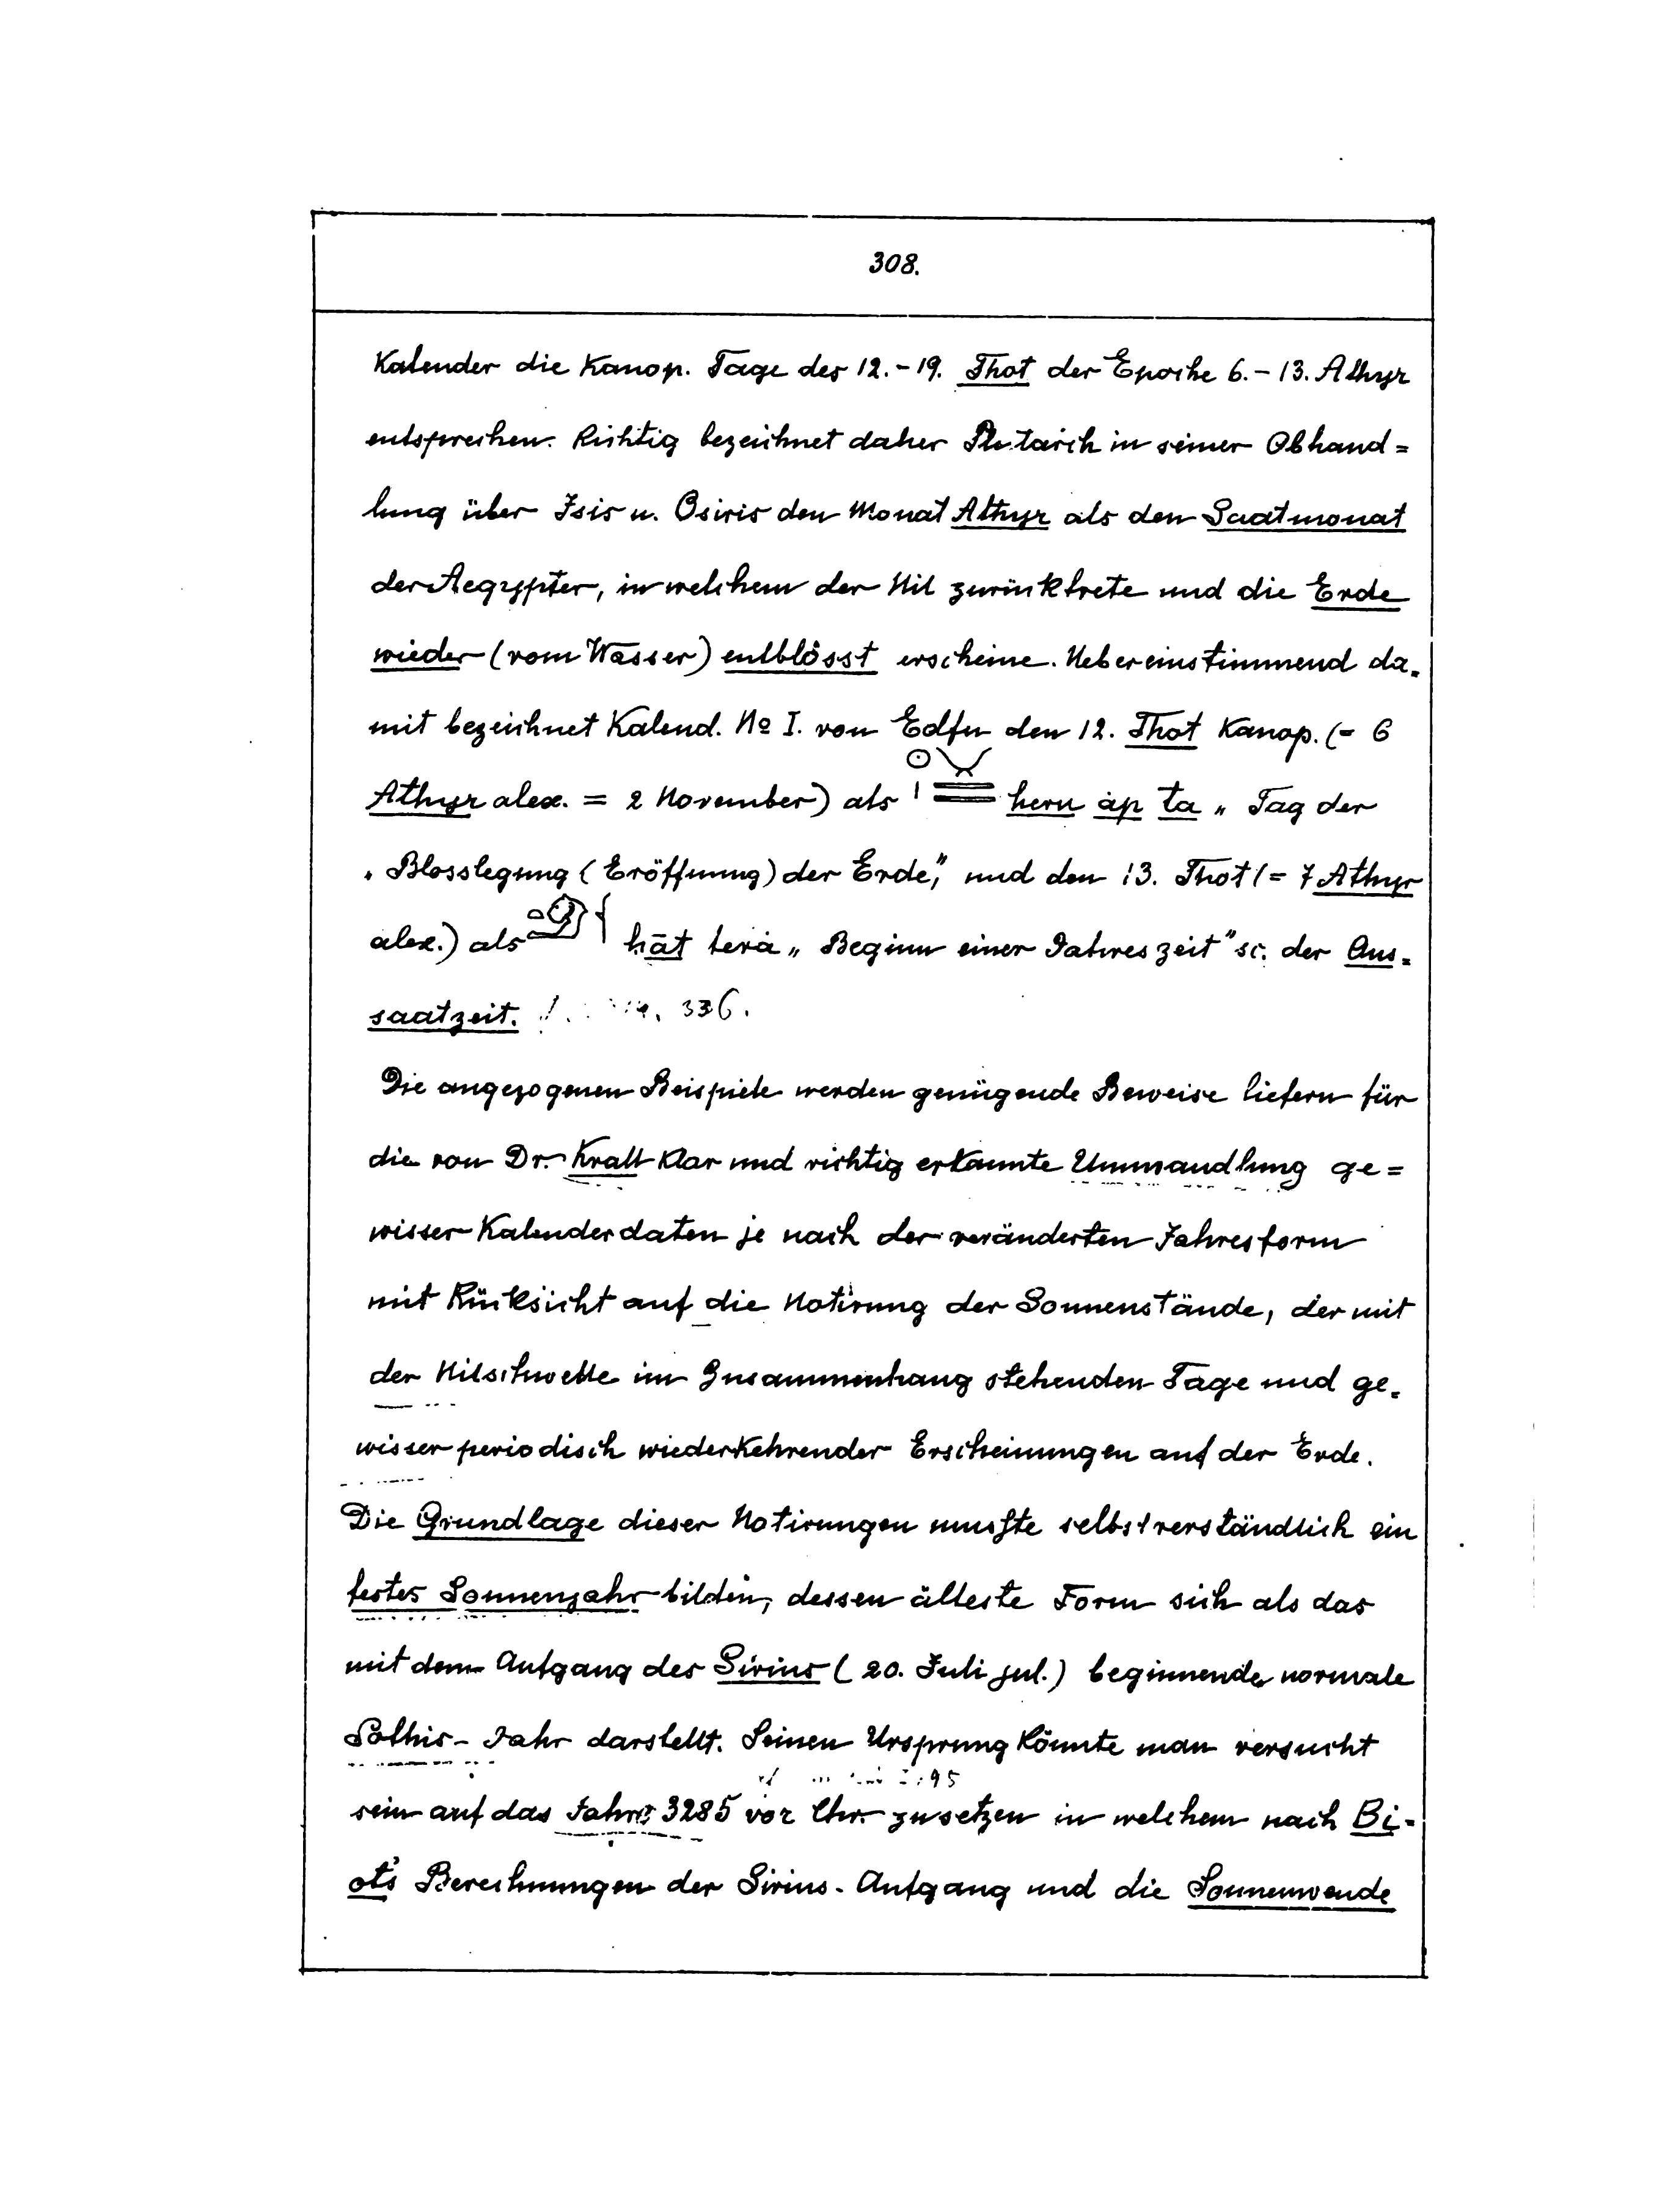 308.
Kalender die Kanop. Tage des 12.-19. Thot der Epoche 6.-13. Athyr
entsprechen. Richtig bezeichnet daher Plutarch in seiner Abhand=
lung über Isis u. Osiris den Monat Athyr als den Saatmonat
der Aegypter, in welchem der Nil zurücktrete und die Erde
wieder (vom Wasser) entblösst erscheine. Uebereinstimmend da=
mit bezeichnet Kalend. No I. von Edfu den 12. Thot Kanop. (= 6
Athyr alex. = 2 November) als heru áp ta „ Tag der
„ Blosslegung (Eröffnung) der Erde," und den 13. Thot (= 7 Athyr
alex.) als hāt terȧ „ Beginn einer Jahreszeit" sc. der Aus=
saatzeit. 336.
Die angezogenen Beispiele werden genügende Beweise liefern für
die von Dr. Krall klar und richtig erkannte Umwandlung ge=
wisser Kalenderdaten je nach der veränderten Jahresform
mit Rücksicht auf die Notirung der Sonnenstände, der mit
der Nilschwelle im Zusammenhang stehenden Tage und ge=
wisser periodisch wiederkehrender Erscheinungen auf der Erde.
Die Grundlage dieser Notirungen musste selbstverständlich ein
festes Sonnenjahr bilden, dessen älteste Form sich als das
mit dem Aufgang des Sirius (20. Juli jul.) beginnende normale
Sothis-Jahr darstellt. Seinen Ursprung könnte man versucht
sein auf das Jahr 3285 vor Chr. zu setzen in welchem nach Bi=
ot's Berechnungen der Sirius-Aufgang und die Sonnenwende